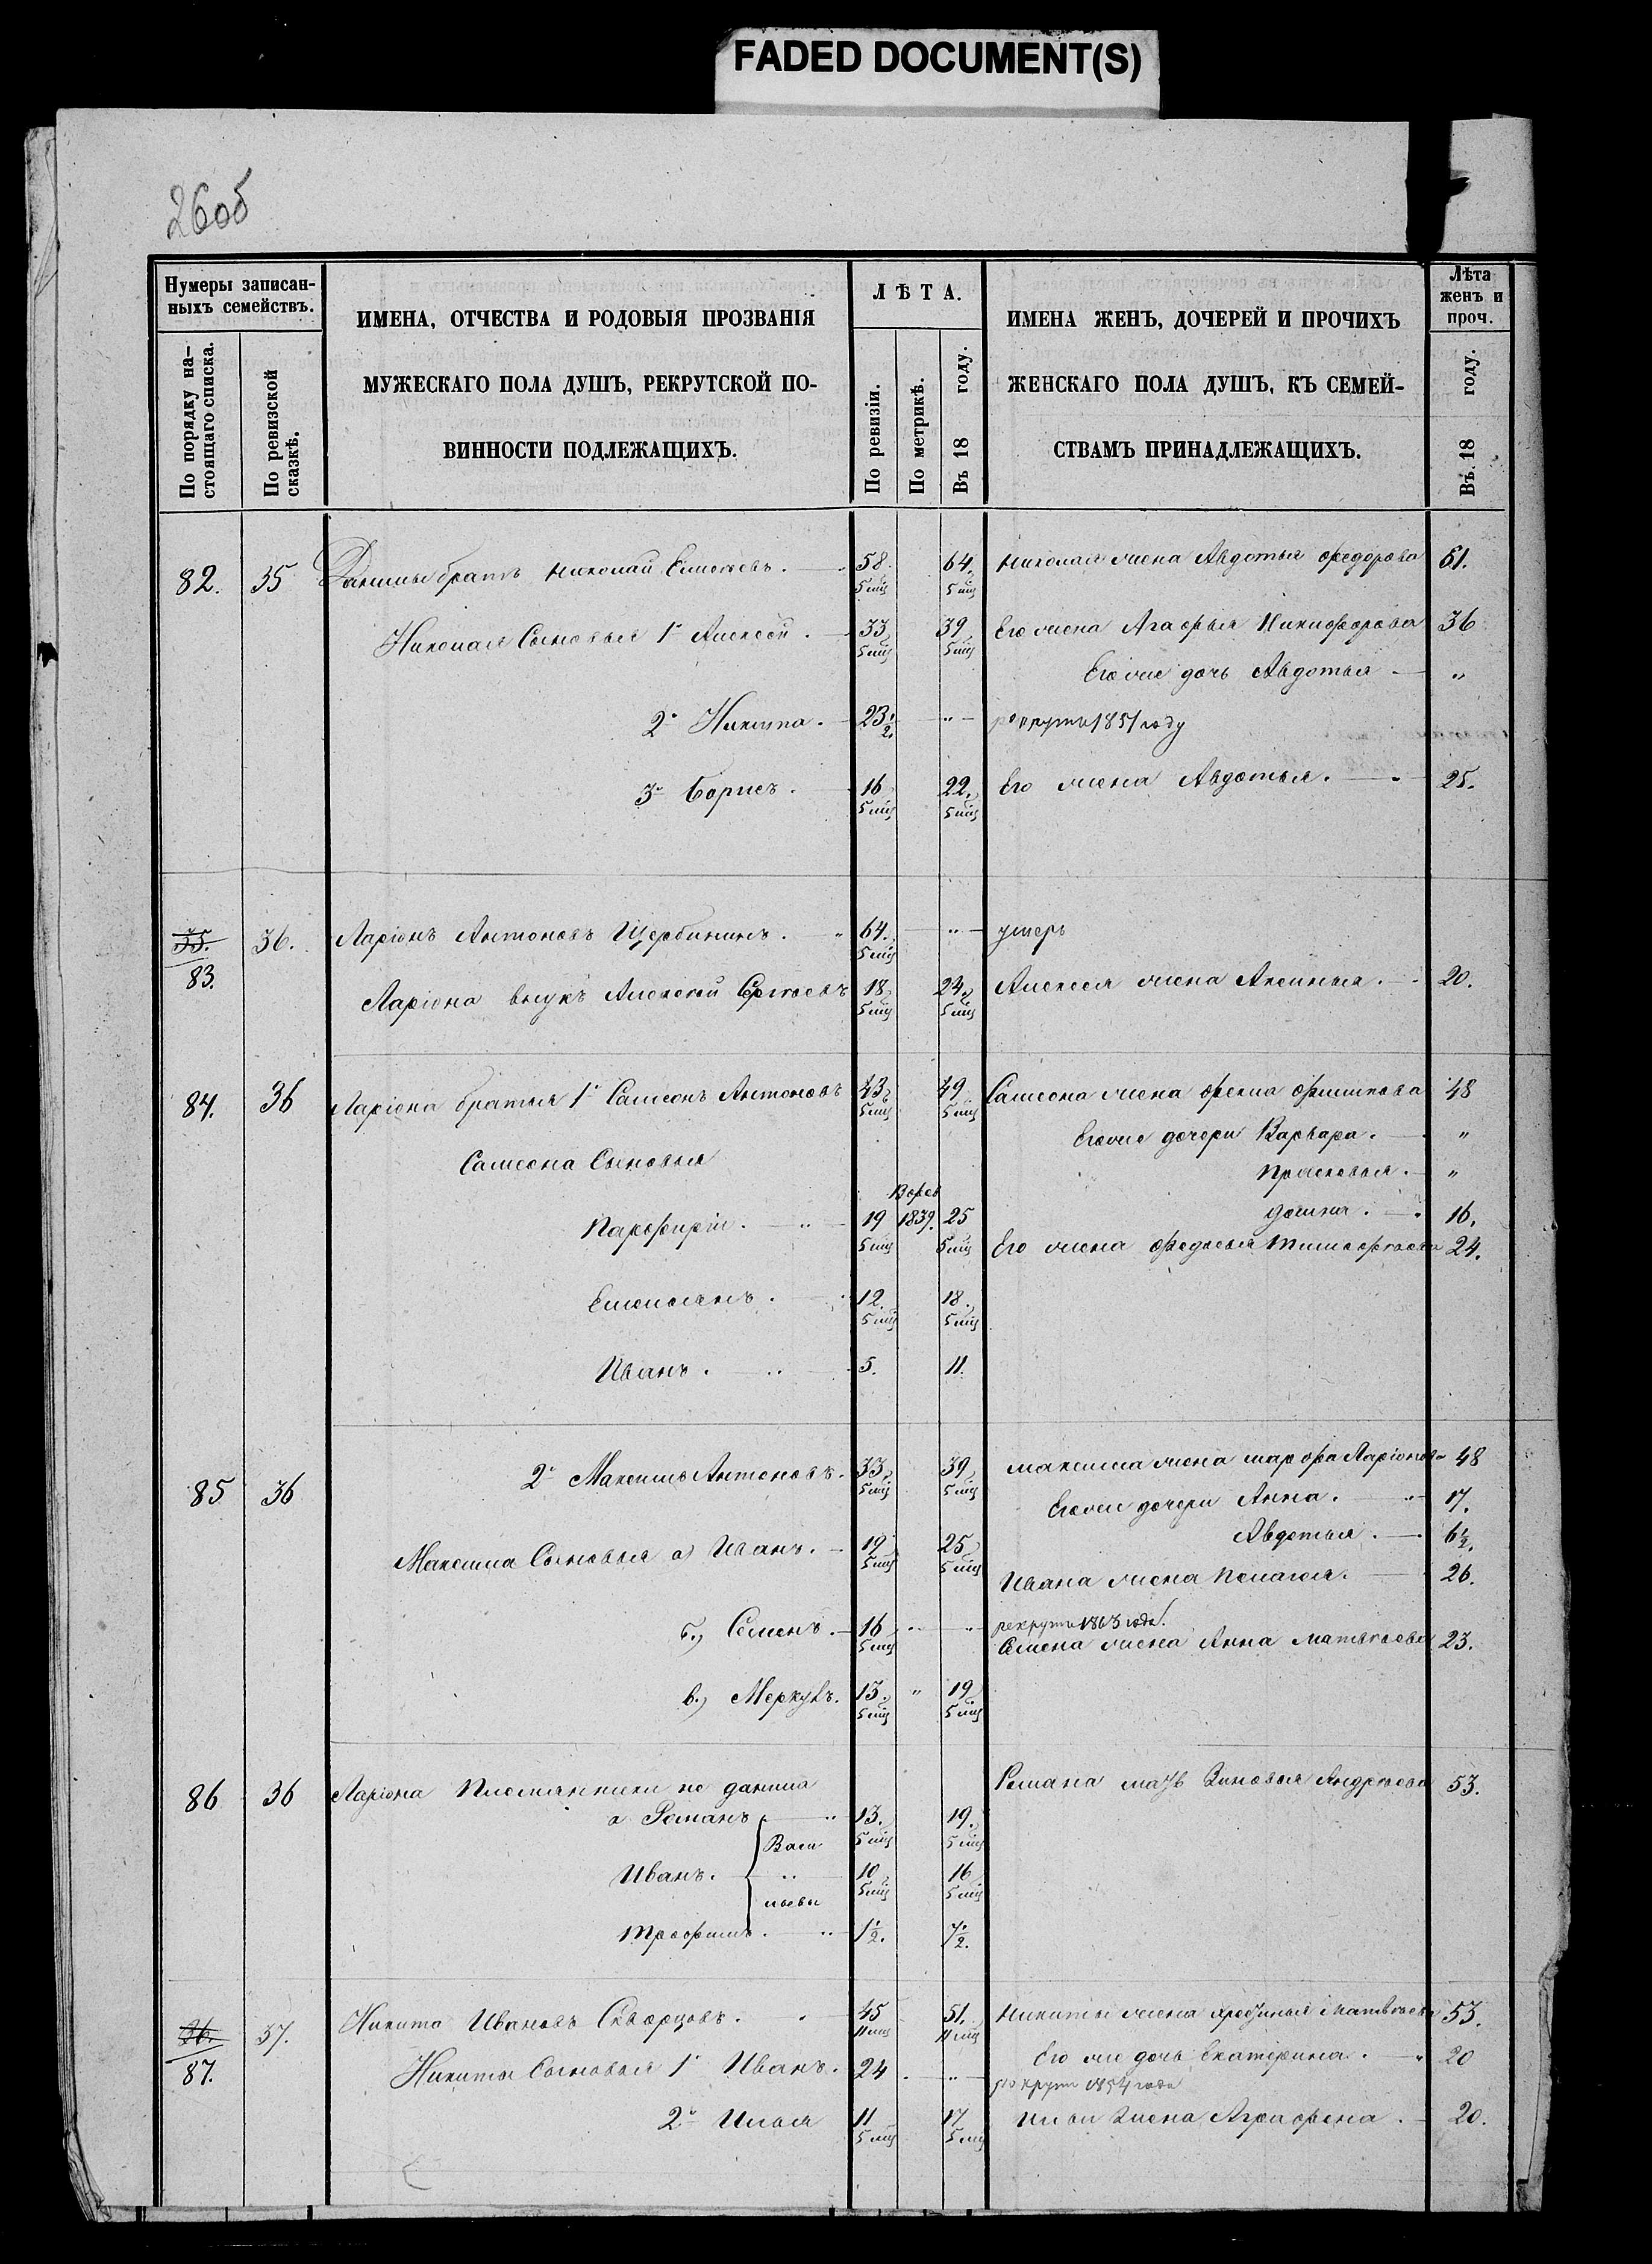 FADED DOCUMENT(S)
26об
Нумеры записан-
ныхъ семействъ.
По порядку на-
стоящаго списка.
По ревизской
сказкѣ.
ИМЕНА, ОТЧЕСТВА И РОДОВЫЯ ПРОЗВАНІЯ
МУЖЕСКАГО ПОЛА ДУШЪ, РЕКРУТСКОЙ ПО-
ВИННОСТИ ПОДЛЕЖАЩИХЪ.
ЛѢТА.
По ревизіи.
По метрикѣ.
Въ 18 году.
ИМЕНА ЖЕНЪ, ДОЧЕРЕЙ И ПРОЧИХЪ
ЖЕНСКАГО ПОЛА ДУШЪ, КЪ СЕМЕЙ-
СТВАМЪ ПРИНАДЛЕЖАЩИХЪ.
Лѣта
женъ и
проч.
Въ 18 году.
82. 35 братъ Николай 58. 5 мц 64. 5 мц Николая жена Авдотья Федорова 61.
Николая Сыновья 1й Алексей 33 5 мц 39 5 мц Его жена Агафья Никифорова 36
Его же дочь Авдотья „
2й Никита 23½ „ рекрутъ 1851 году
3й Борисъ 16 5 мц 22 5 мц Его жена Авдотья 25.
35. 83. 36. Ларіонъ Антоновъ Щербининъ 64. 5 мц „ умеръ
Ларіона внукъ Алексей Сергѣевъ 18 5 мц 24 5 мц Алексея жена Аксинья 20.
84. 36 Ларіона братья 1й Самсонъ Антоновъ 43 5 мц 49 5 мц Самсона жена Фекла Филипова 48
Его же дочери Варвара „
Самсона Сыновья
Прасковья „
Домна 16.
Парфирій 19 5 мц 1839. 25 5 мц Его жена Федосья Тимофѣева 24.
Емельянъ 12. 5 мц 18. 5 мц
Иванъ 5. 11.
85 36 2й Максимъ Антоновъ 33 5 мц 39 5 мц Максима жена Марфа Ларіонова 48
Его же дочери Анна 17.
Авдотья 6½.
Максима Сыновья а) Иванъ 19 5 мц 25 5 мц
Ивана жена Пелагея 26.
б.) Семенъ 16 5 мц „ рекрутъ 1863 года.
Семена жена Анна Матвѣева 23.
в.) Меркулъ. 13. 5 мц „ 19 5 мц
86 36 Ларіона Племянники
Романа мать Зиновья Андрѣева 53.
а Романъ 13. 5 мц 19. 5 мц
Васи
Иванъ. 10 5 мц 16 5 мц
льевы
Трофимъ 1½. 7½.
36. 87. 37. Никита Ивановъ Скворцовъ. 45 11 мц 51. 11 мц Никиты жена Матвѣева 53.
Его же дочь Екатерина 20
Никиты Сыновья 1й Иванъ. 24 „ рекрутъ 1854 года
2й Илья 11 5 мц 17 5 мц Ильи жена Аграфена 20.